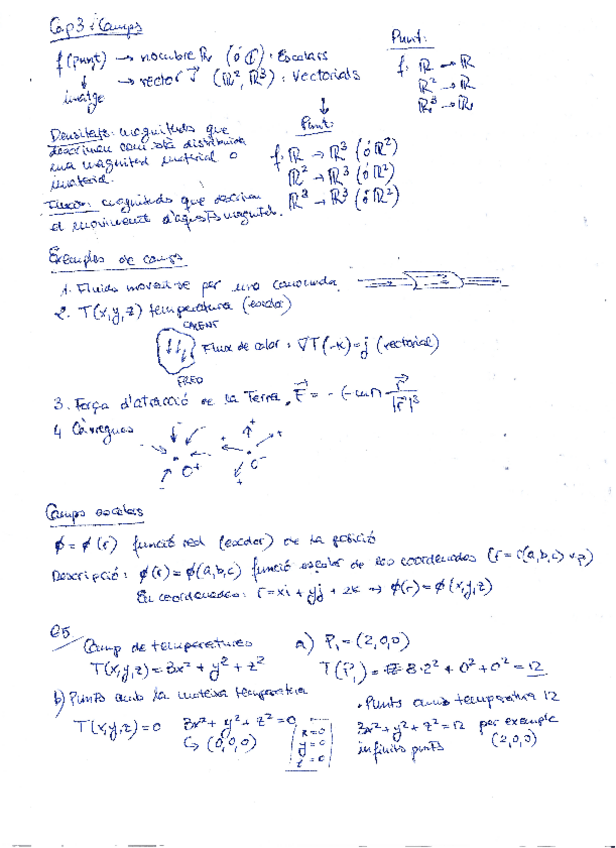 Cap 3: Camps
f(punt) → nombre ℝ (ó ℂ): Escalars
↓ → vector v⃗ (ℝ², ℝ³): Vectorials
imatge
Punt:
f: ℝ → ℝ
ℝ² → ℝ
ℝ³ → ℝ
Densitats: magnituds que
descriuen com està distribuida
una magnitud material o
inmaterial.
Fluxos: magnituds que descriuen
el moviment d'aquests magnituds.
↓
Punt:
f: ℝ → ℝ³ (ó ℝ²)
ℝ² → ℝ³ (ó ℝ²)
ℝ³ → ℝ³ (ó ℝ²)
Exemples de camps
1. Fluido movent-se per una canonada
2. T(x,y,z) temperatura (escalar)
CALENT
Flux de calor: ∇T(-k) = j (vectorial)
FRED
3. Força d'atracció de la Terra, F⃗ = - r⃗/|r⃗|³
4 Càrregues
Q⁺ Q⁻
Camps escalars
ϕ = ϕ(r) funció real (escalar) de la posició
Descripció: ϕ(r) = ϕ(a,b,c) funció escalar de les coordenades (r = r(a,b,c))
En coordenades: r = xi + yj + zk → ϕ(r) = ϕ(x,y,z)
e5
Camp de temperatures
T(x,y,z) = 3x² + y² + z²
a) P₁ = (2,0,0)
T(P₁) = 3·2² + 0² + 0² = 12
b) Punts amb la mateixa temperatura
T(x,y,z) = 0 3x² + y² + z² = 0
↳ (0,0,0)
x = 0
y = 0
z = 0
· Punts amb temperatura 12
3x² + y² + z² = 12 per exemple
infinits punts (2,0,0)